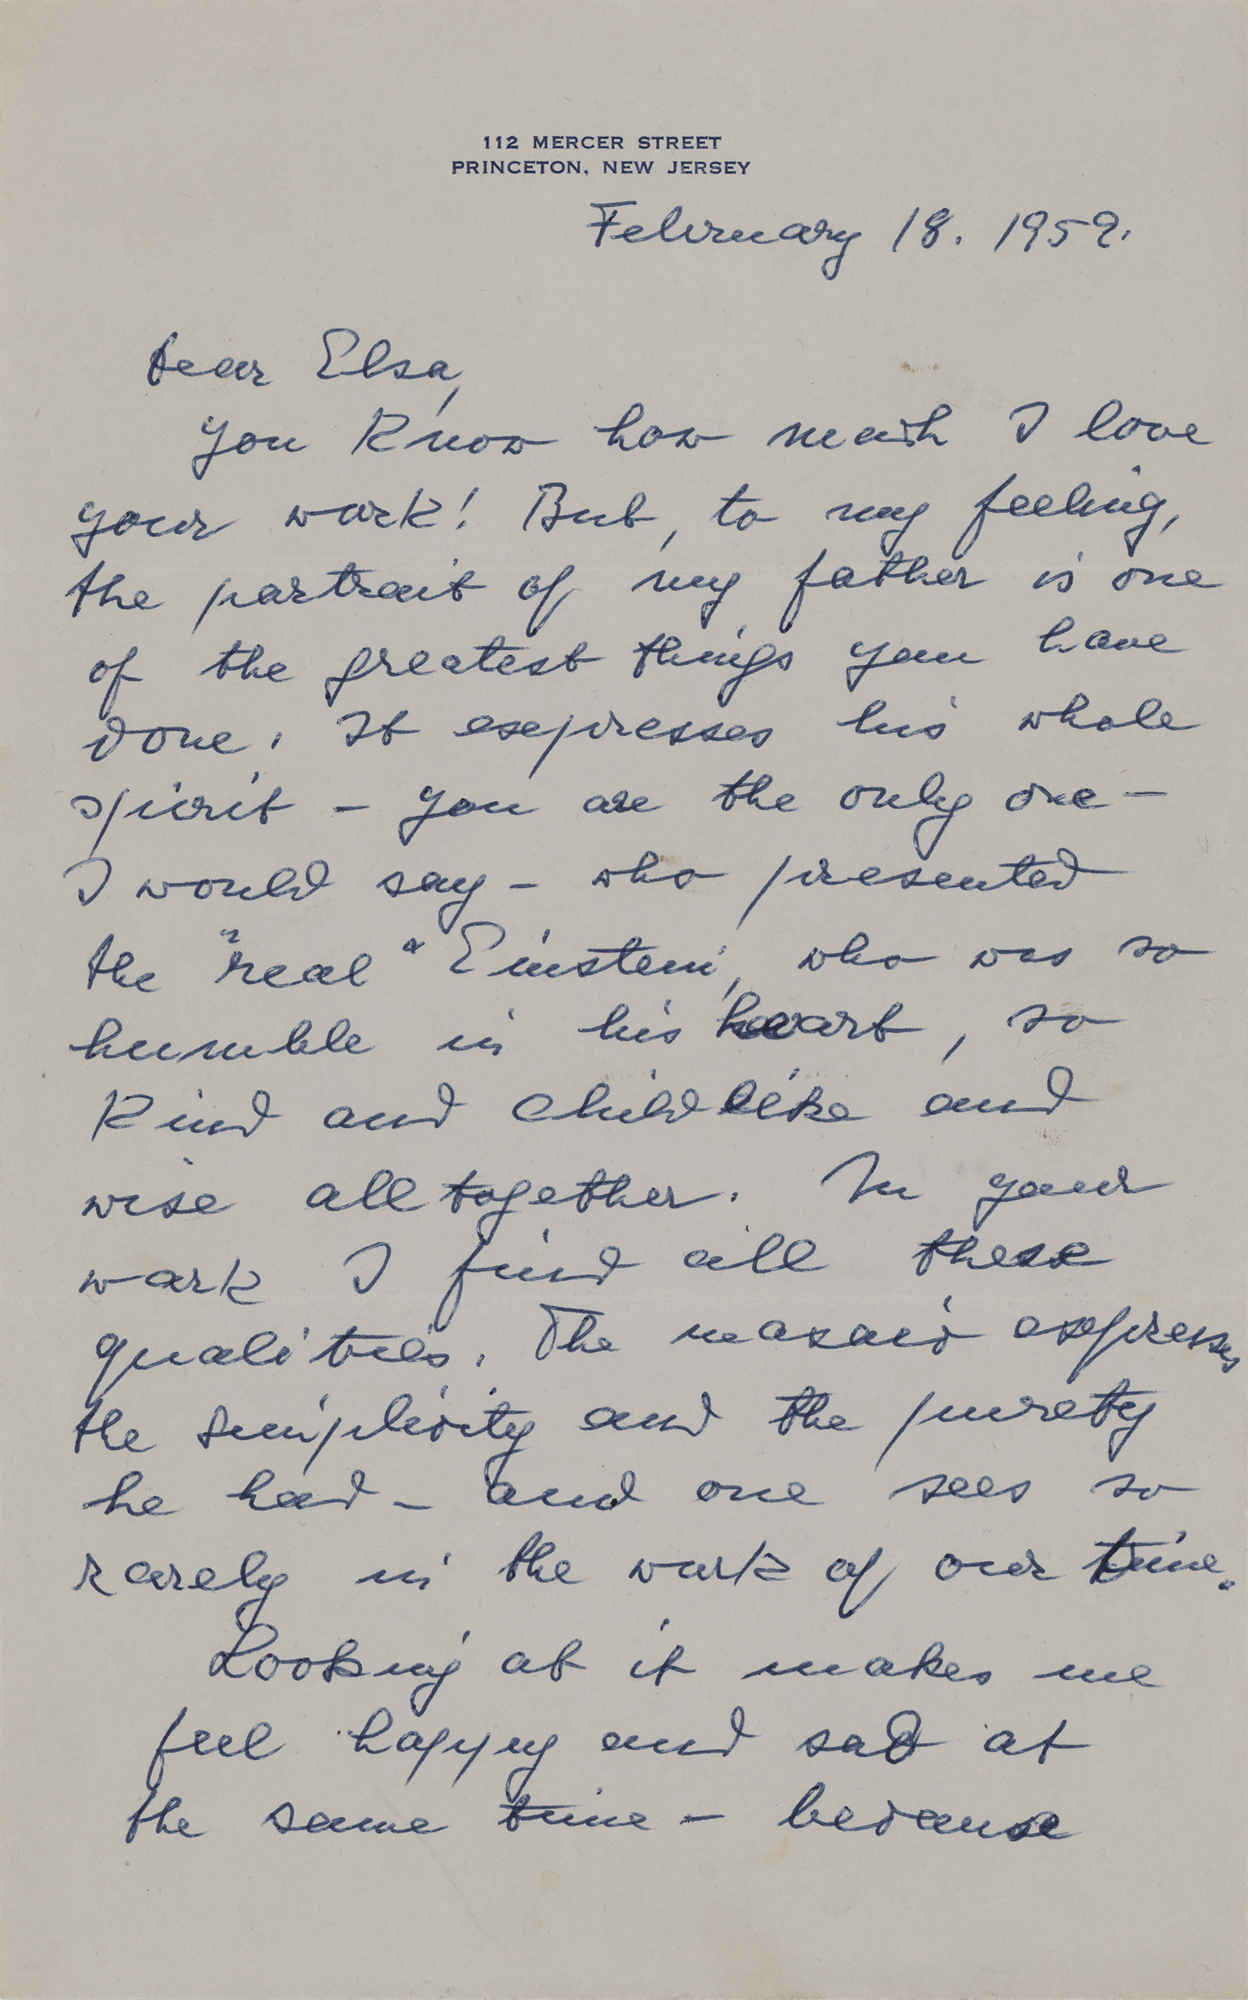 112 MERCER STREET
PRINCETON, NEW JERSEY
February 18. 1959.
Dear Elsa,
You know how much I love
your work! But, to my feeling,
the portrait of my father is one
of the greatest things you have
done. It expresses his whole
spirit – you are the only one –
I would say – who presented
the "real" Einstein, who was so
humble in his heart, so
kind and childlike and
wise alltogether. In your
work I find all these
qualities. The mosaic expresses
the simplicity and the purety
he had – and one sees so
rarely in the work of our time.
Looking at it makes me
feel happy and sad at
the same time – because